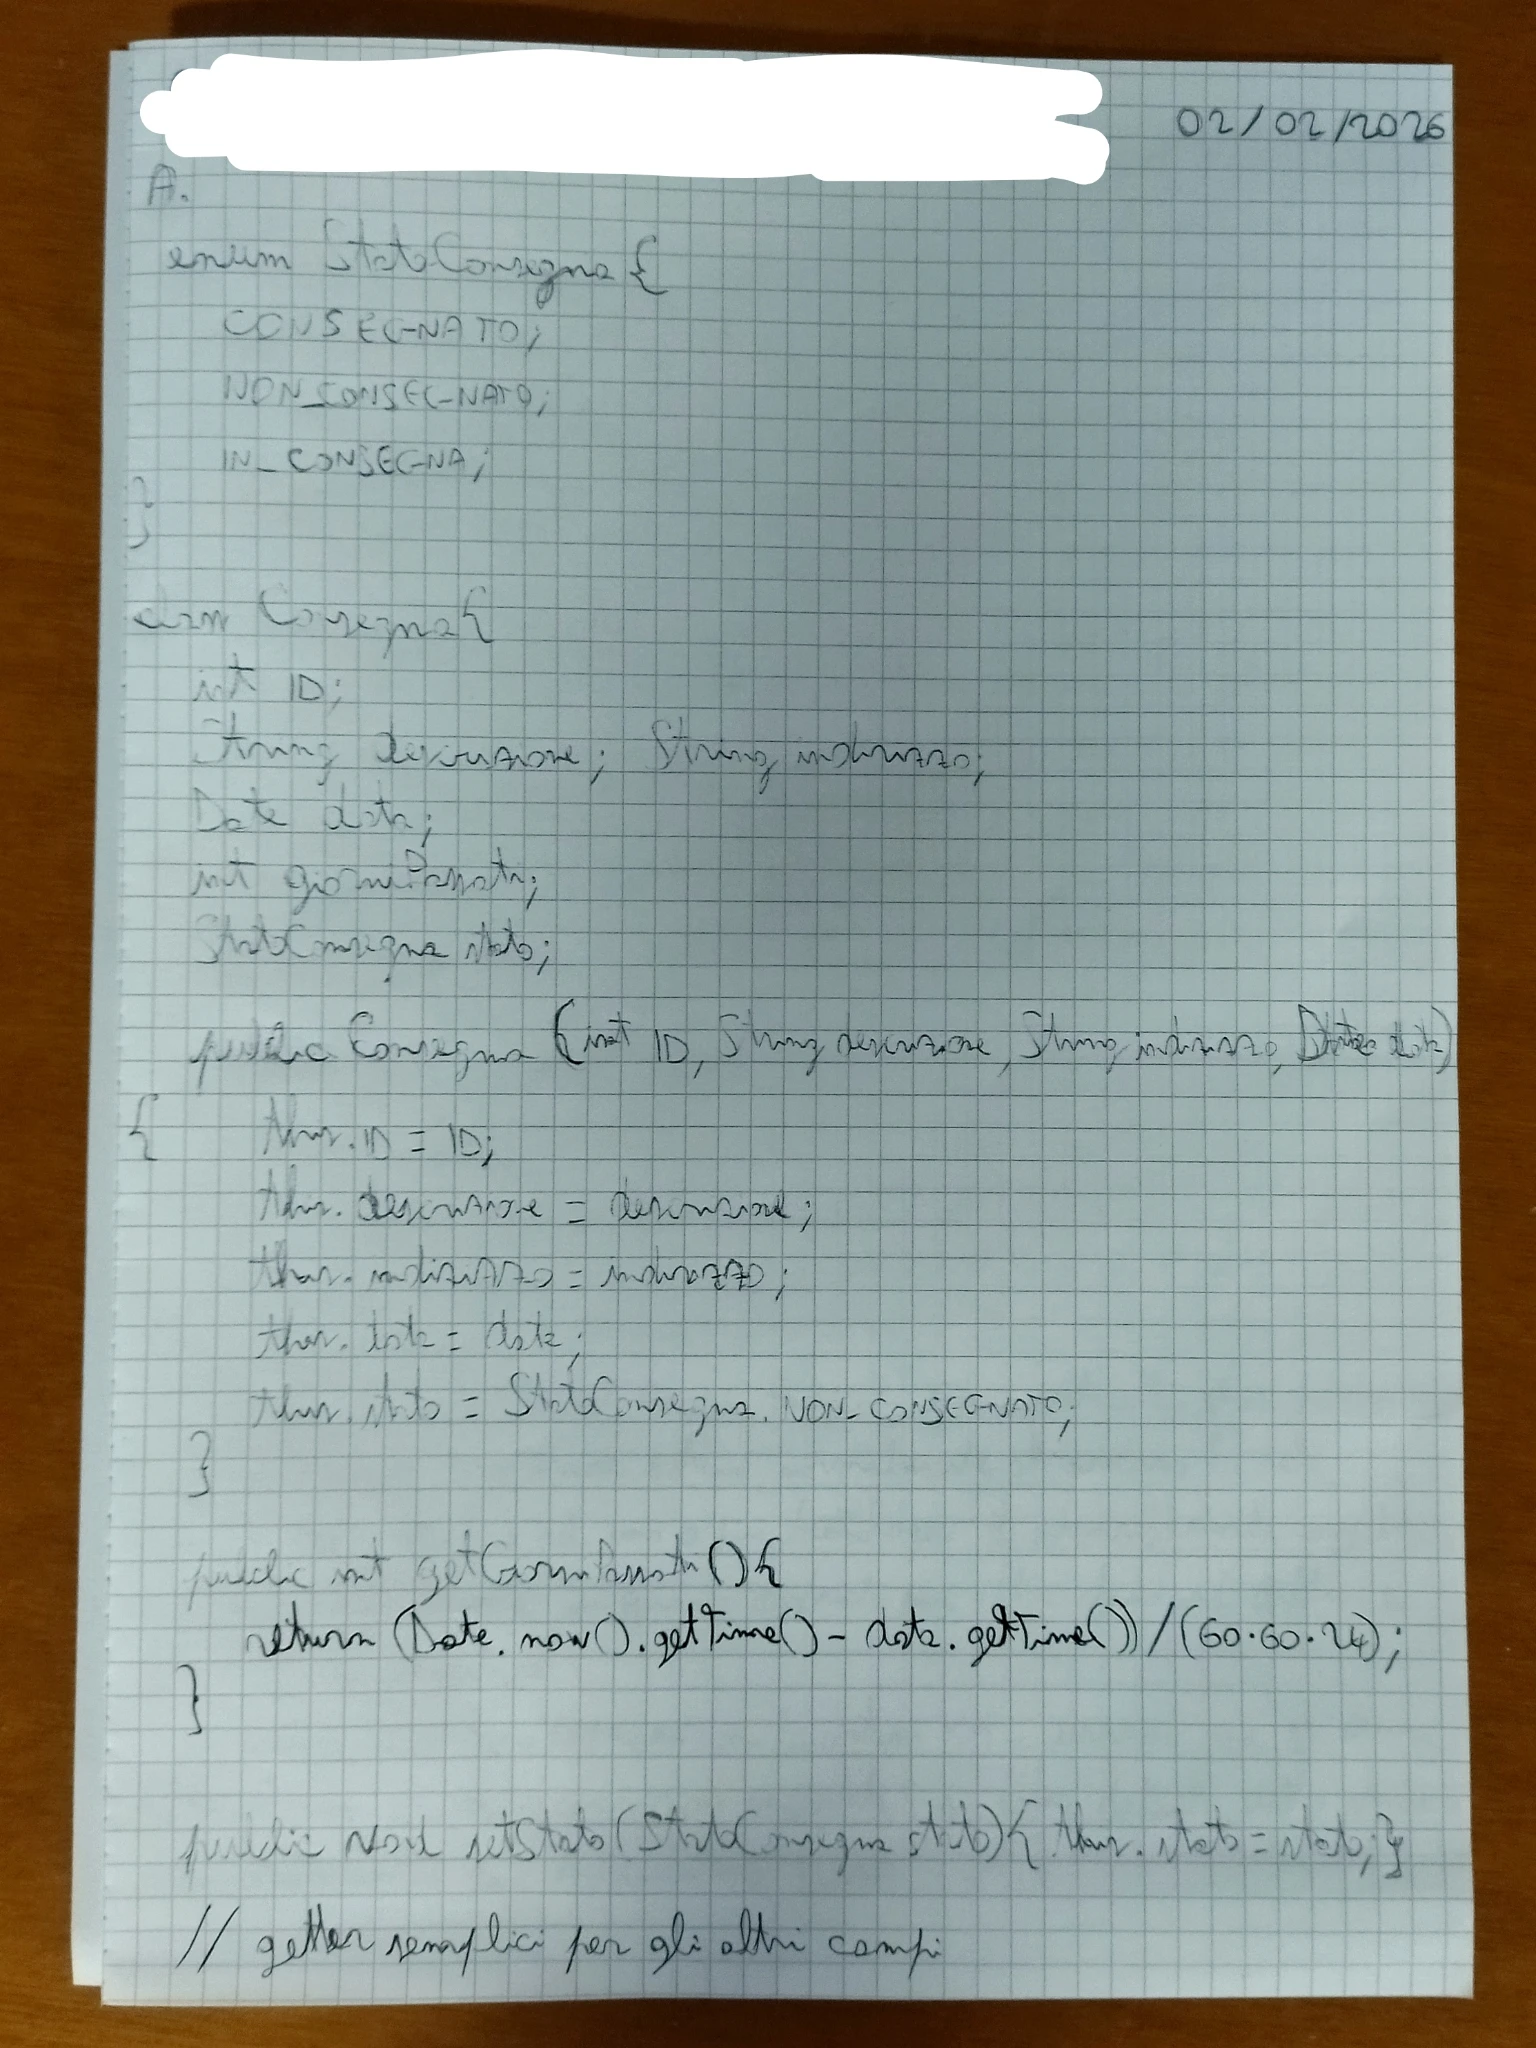 02/02/2026
A.
enum StatoConsegna{
CONSEGNATO;
NON_CONSEGNATO;
IN_CONSEGNA;
}
class Consegna{
int ID;
String descrizione; String indirizzo;
Date data;
int giorniPassati;
StatoConsegna stato;
public Consegna (int ID, String descrizione, String indirizzo, Date data)
{ this.ID = ID;
this.descrizione = descrizione;
this.indirizzo = indirizzo;
this.data = data;
this.stato = StatoConsegna.NON_CONSEGNATO;
}
public int getGiorniPassati(){
return (Date.now().getTime() - data.getTime())/(60·60·24);
}
public void setStato(StatoConsegna stato){ this.stato = stato;}
// getter semplici per gli altri campi